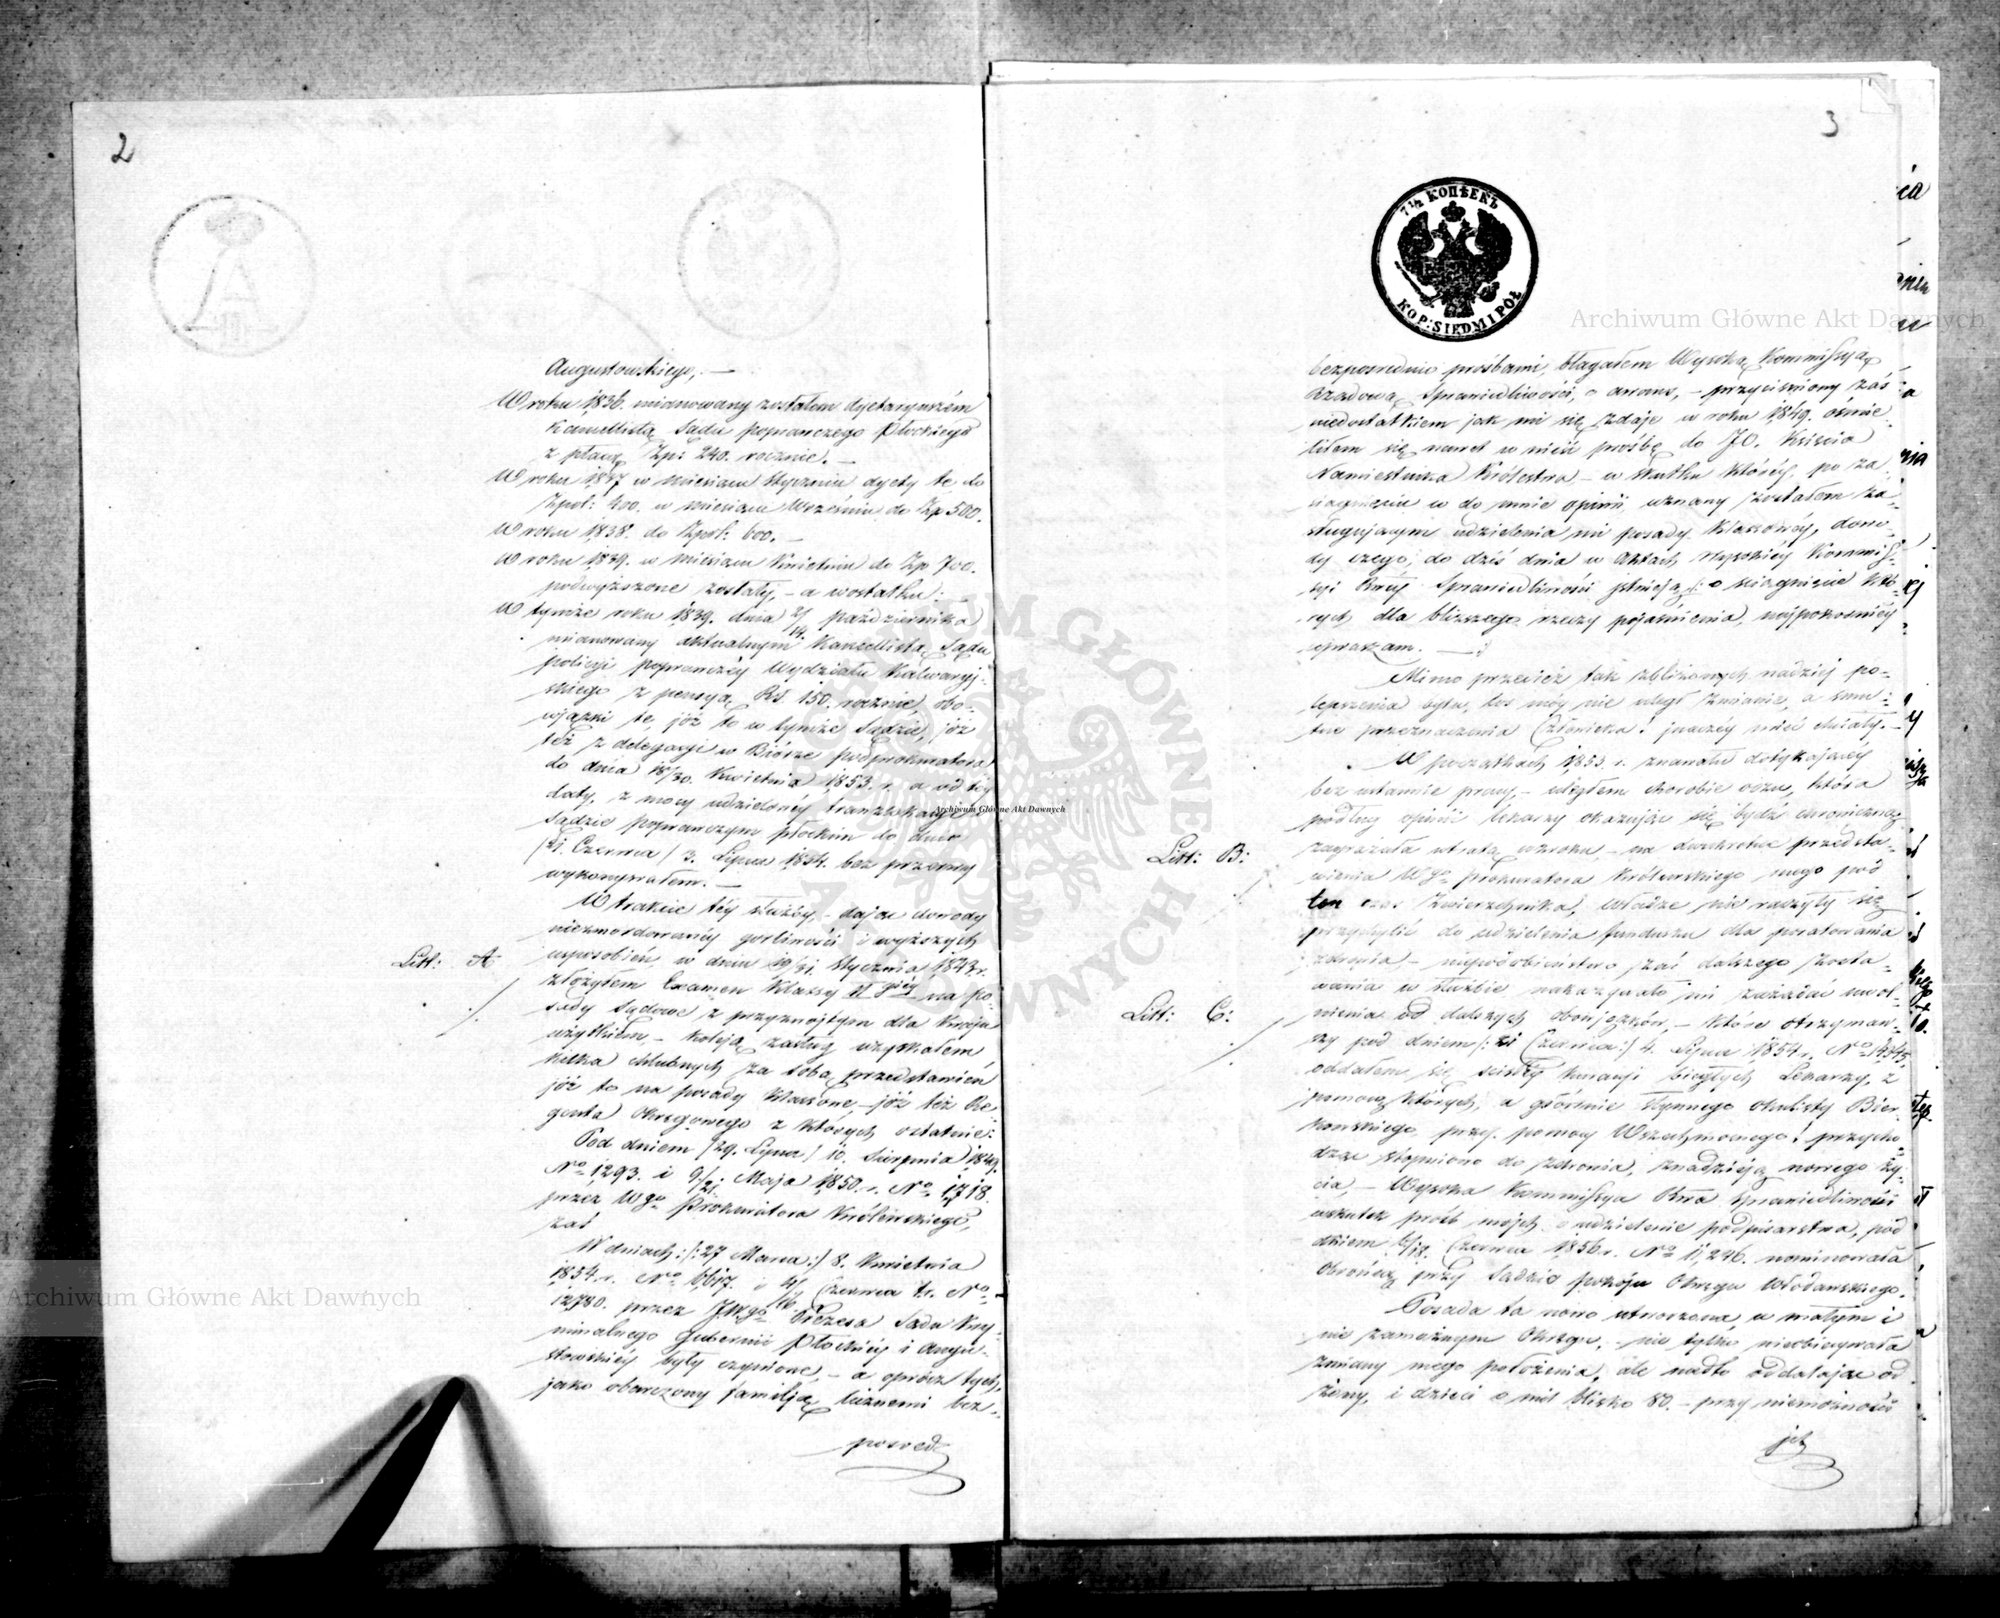 2
Augustowskiego, —
W roku 1836. mianowany zostałem dyetaryuszem
Kancellistą Sądu poprawczego Płockiego
z płacą Zp: 240. rocznie. —
W roku 1837 w miesiącu Styczniu dyety te do
Zpol: 400. w miesiącu Wrześniu do Zp 500.
W roku 1838. do Zpol: 600. —
W roku 1839. w miesiącu Kwietniu do Zp 700.
podwyższone zostały, — a wostatku: —
W tymże roku 1839. dnia 2/14 Października
mianowany aktualnym Kancellistą Sądu
policyi poprawczéy Wydziału Kalwaryj-
skiego z pensyą Rs. 150. rocznie, obo-
wiązki te, już to w tymże Sądzie, już
też z delegacyi w Biórze podprokuratora
do dnia 18/30. Kwietnia 1853. r. a od téy
daty, z mocy udzielonéy translokacyi
Sądzie poprawczym płockim do dnia
/21. Czerwca / 3. Lipca 1854. bez przerwy
wykonywałem. —
W trakcie téy służby, — dając dowody
niezmordowanéy gorliwości i wyższych
Litt: A
usposobień, w dniu 19/31. Stycznia 1843 r.
złożyłem Examen Klassy II giéy na po-
sady Sądowe z przyznajtym dla Kraju
użytkiem, — koleją zasług uzyskałem
kilka chlubnych za sobą przedstawień
już to na posady klassowe, — już też Re-
genta Okręgowego z których ostatnie:
Pod dniem /29. Lipca / 10. Sierpnia 1849.
No 1293. i 9/21. Maja 1850. r. No 1718.
przez Wgo Prokuratora Królewskiego,
zaś
W dniach: /:27 Marca:/ 8. Kwietnia
1854. r. No 6617. i 4/16. Czerwca t. r. No
12780. przez JWgo Prezesa Sądu Kry-
minalnego Gubernii Płockiéy i Augu-
stowskiéy były czynione, — a oprócz tych,
jako obarczony familją licznemi bez-
posred
3
7½ КОПѢЕКЪ
KOP: SIEDM I PÓŁ
bezposrednio prośbami, błagałem Wysoką Kommissyą
Rządową Sprawiedliwości, o awans, — przyciśniony zaś
niedostatkiem jak mi się zdaje w roku 1849. ośmie-
liłem się nawet wnieść prośbę do JO. Księcia
Namiestnika Królestwa — w skutku któréy, po za-
siągnieniu o do mnie opinii, uznany zostałem za-
sługującym udzielenia mi posady klassowéy, dowo-
dy czego, do dziś dnia w aktach Wysokiéy Kommis-
syi Rwéy Sprawiedliwości istnieją, /: o wciągnienie któ-
rych dla bliższego rzeczy pojaśnienia, najpokorniéy
upraszam. — :/
Mimo przecież tak zbliżonych nadziei po-
lepszenia bytu, los mój nie uległ zmianie, a smu-
tne przeznaczenia Człowieka! inaczéy mieć chciały. —
W początkach 1853. r. znanału dotykającéy
bez ustannie pracy, — uległem chorobie oczu, która
podług opinii lekarzy okazując się bydź chroniczną
Litt: B:
zagrażała utratą wzroku, — na dwukrotne przedsta-
wienia Wgo Prokuratora Królewskiego mego pod
ten czas Zwierzchnika, Władze nie raczyły się
przychylić do udzielenia funduszu dla poratowania
zdrowia, — niepodobieństwo zaś dalszego zosta-
wania w służbie nakazywało mi zażądać uwol-
Litt: C:
nienia od dalszych obowiązków, — które otrzymaw-
szy pod dniem /: 21 Czerwca :/ 4. Lipca 1854 r. No 14345,
oddałem się ścisłéy kuracyi biegłych Lekarzy, z
pomocą których, a głównie słynnego okulisty Bier-
kowskiego, przy pomocy Wszechmocnego! przycho-
dząc stopniowo do zdrowia, z nadzieją nowego ży-
cia, — Wysoka Kommissya Rwa Sprawiedliwości
wskutek próśb moich o udzielenie podpisarstwa, pod
dniem 6/18. Czerwca 1856 r. No 11,246. nominowała
Obrońcą przy Sądzie pokoju Okręgu Włodawskiego.
Posada ta nowo utworzona, w małym i
nie zamożnym Okręgu, — nie tylko nieobiecywała
zmiany mego położenia, ale nadto oddalając od
żony, i dzieci o mil blisko 80. — przy niemożności
ich
Archiwum Główne Akt Dawnych
Archiwum Główne Akt Dawnych
Archiwum Główne Akt Dawnych